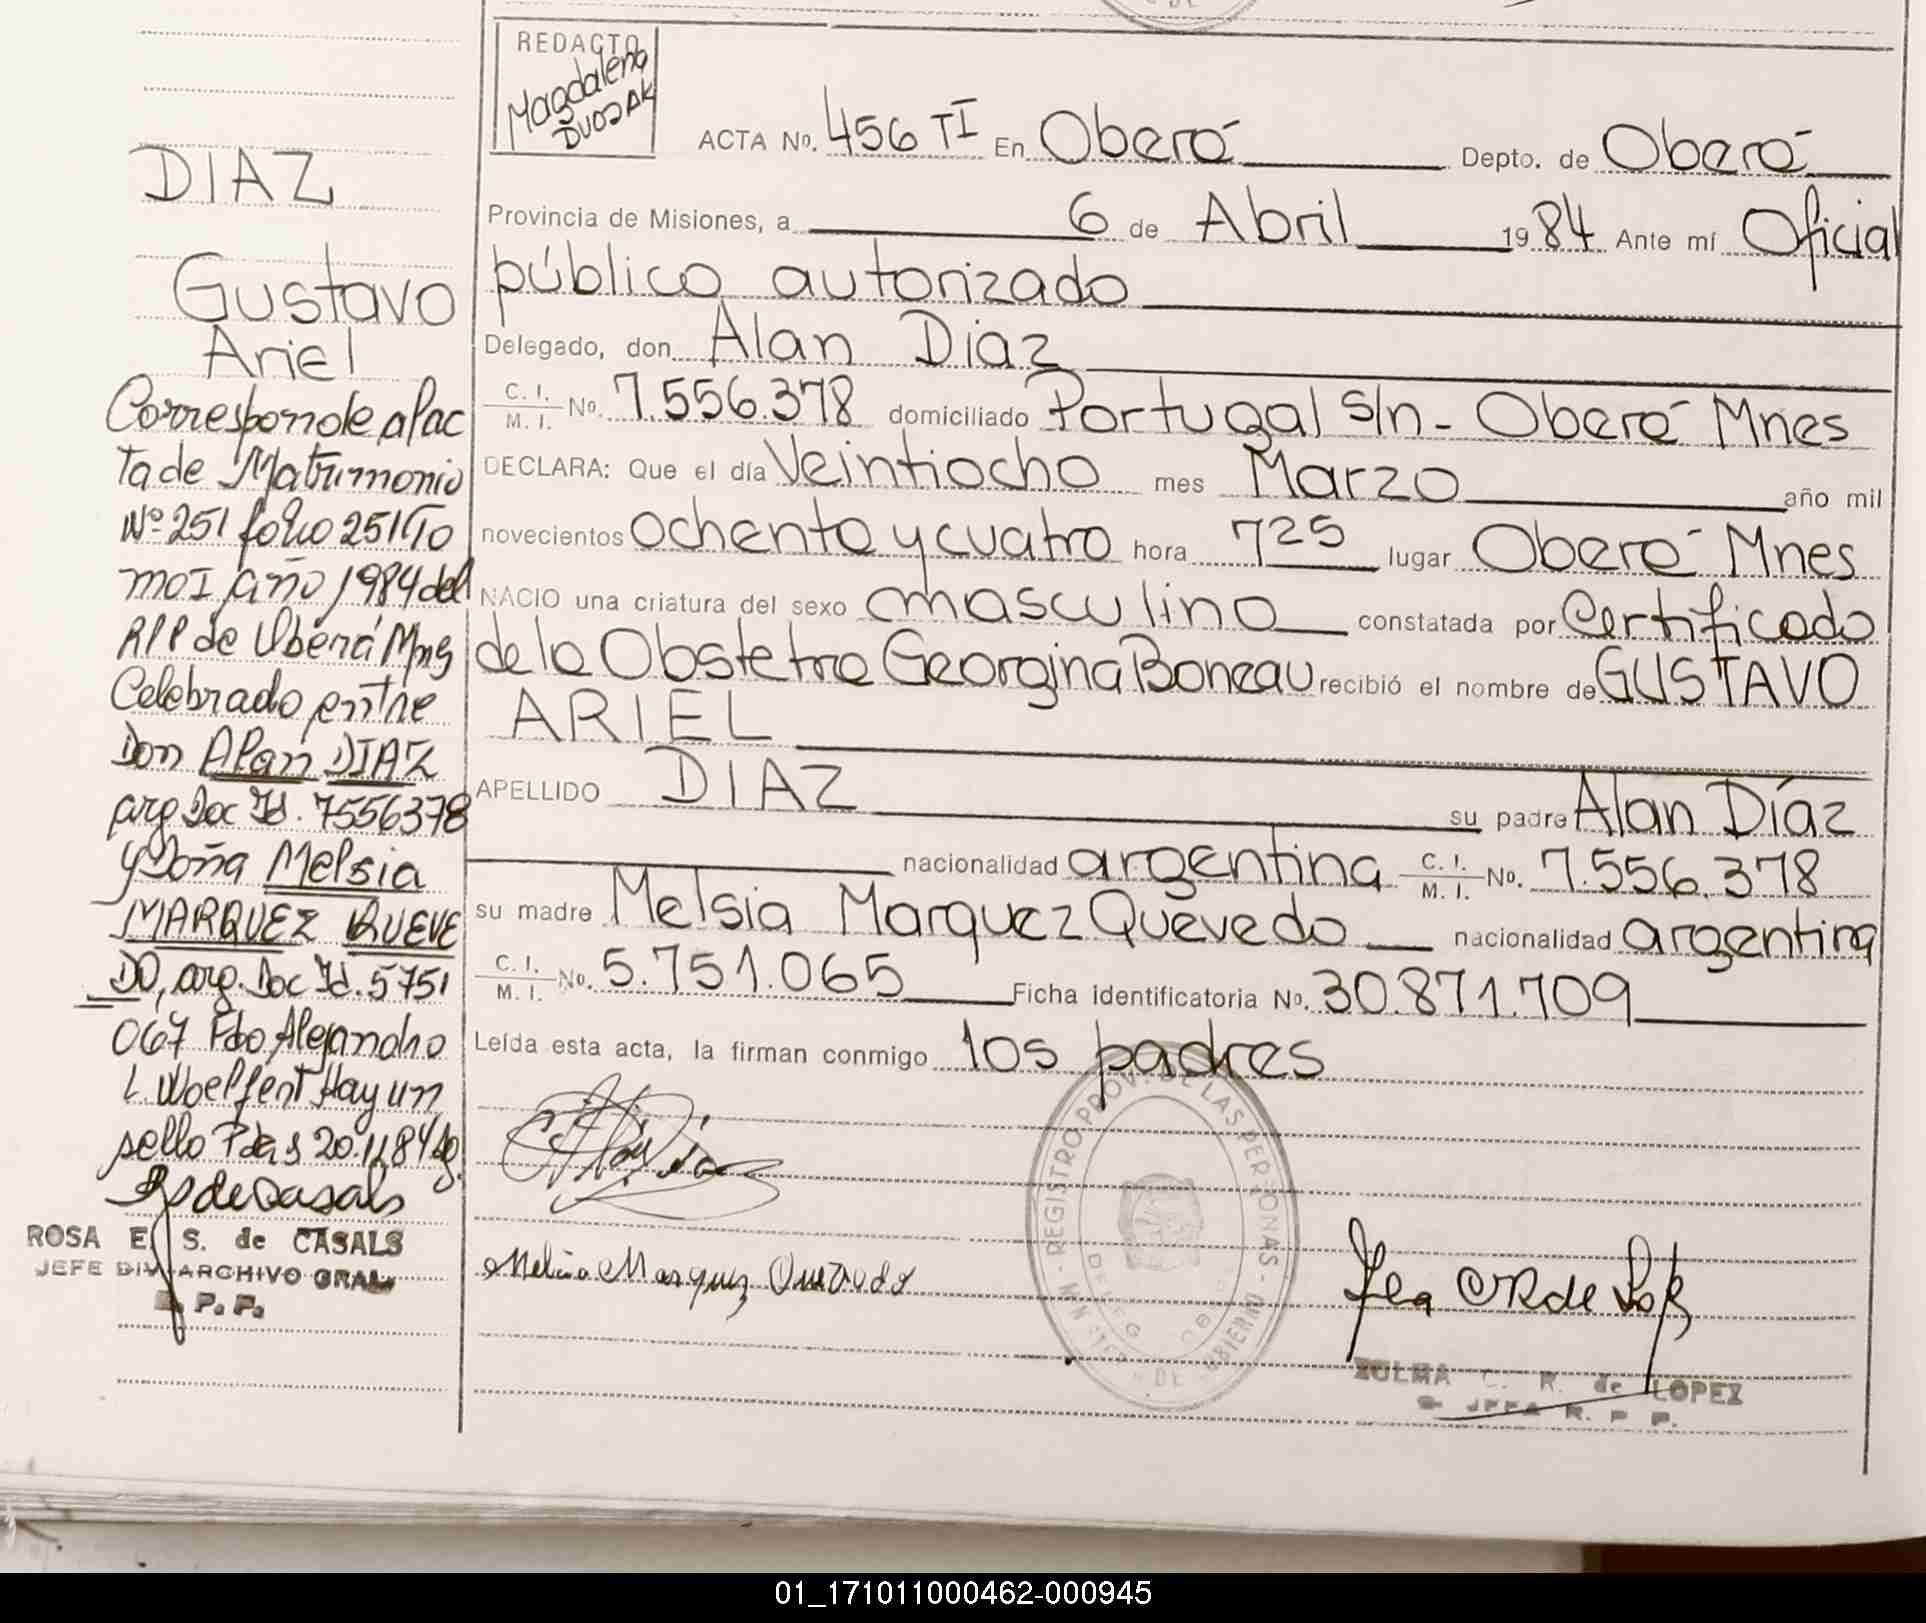 REDACTO
Magdalena
DUDJAK
ACTA No. 456 TI En Oberá Depto. de Oberá
Provincia de Misiones, a 6 de Abril 1984 Ante mí Oficial
público autorizado
Delegado, don Alan Diaz
C. I. M. I. No. 7.556.378 domiciliado Portugal s/n - Oberá Mnes
DECLARA: Que el día Veintiocho mes Marzo año mil
novecientos ochenta y cuatro hora 725 lugar Oberá Mnes
NACIO una criatura del sexo masculino constatada por Certificado
de la Obstetra Georgina Boneau recibió el nombre de GUSTAVO
ARIEL
APELLIDO DIAZ su padre Alan Díaz
nacionalidad argentina C. I. M. I. No. 7.556.378
su madre Melsia Marquez Quevedo nacionalidad argentina
C. I. M. I. No. 5.751.065 Ficha identificatoria No. 30.871.709
Leída esta acta, la firman conmigo los padres
Melsia Marquez Quevedo
REGISTRO PROV. DE LAS PERSONAS
ZULMA C. R. de LOPEZ
JEFA R. P. P.
DIAZ
Gustavo
Ariel
Corresponde al ac
ta de Matrimonio
Nº 251 folio 251 To
mo I año 1984 del
RPP de Oberá Mns
Celebrado entre
Don Alan DIAZ
arg Doc Id. 7556378
y Doña Melsia
MARQUEZ QUEVE
DO, arg. Doc Id. 5751
067 Fdo Alejandro
L. Hay un
sello Pdas 20.11.84
R S de Casals
ROSA E. S. de CASALS
JEFE DIV ARCHIVO GRAL
R. P. P.
01_171011000462-000945